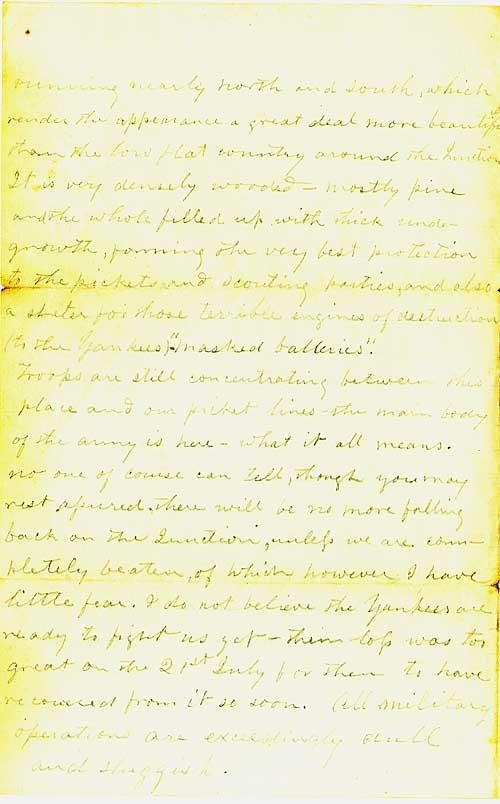 running nearly north and south, which
render the appearance a great deal more beautiful
than the low flat country around the Junction
It is very densely wooded - mostly pine
and the whole filled up with thick under-
growth, forming the very best protection
to the pickets and scouting parties, and also
a shelter for those terrible engines of destruction
(to the Yankees) "masked batteries".
Troops are still concentrating between this
place and our picket lines - the main body
of the army is here - what it all means.
no one of course can tell, though you may
rest assured, there will be no more falling
back on the Junction, unless we are com-
pletely beaten, of which however I have
little fear. I do not believe the Yankees are
ready to fight us yet - their loss was too
great on the 21st July for them to have
recovered from it so soon. All military
operations are exceedingly dull
and sluggish.